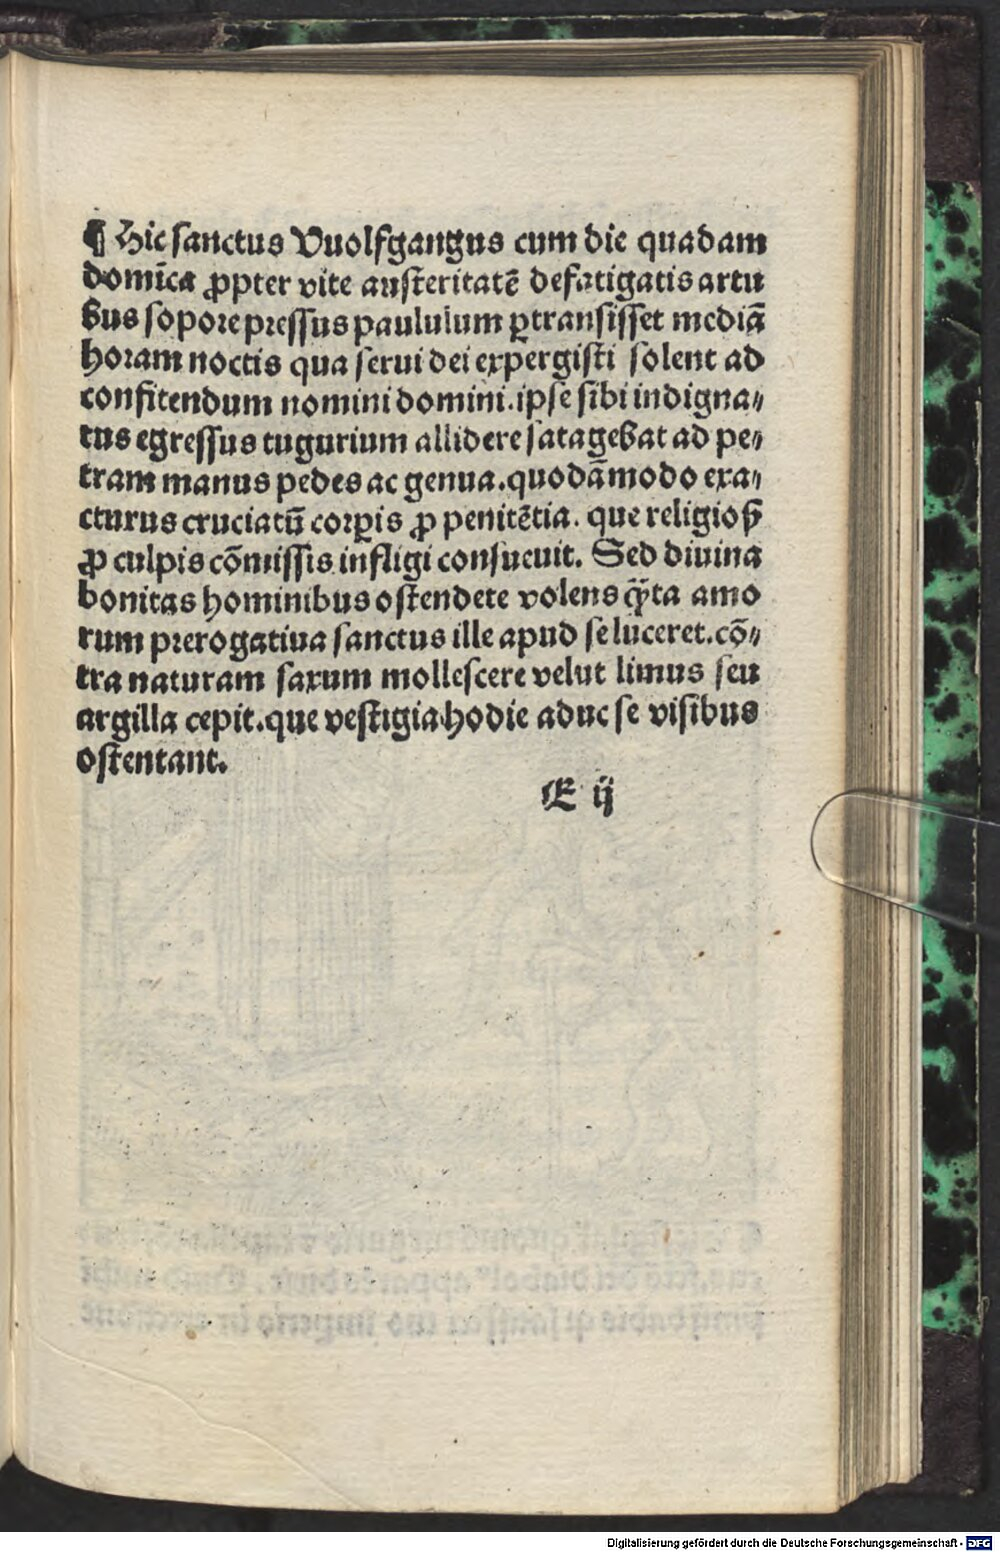 ¶ Hic sanctus Vuolfgangus cum die quadam
domīca ꝓpter vite austeritatē defatigatis artu
bus sopore pressus paululum ꝑtransisset mediā
horam noctis qua serui dei expergisti solent ad
confitendum nomini domini. ipse sibi indigna⸗
tus egressus tugurium allidere satagebat ad pe⸗
tram manus pedes ac genua. quodāmodo exa⸗
cturus cruciatū corꝑis ꝓ penitētia. que religioß
ꝓ culpis cōmissis infligi consueuit. Sed diuina
bonitas hominibus ostendete volens q̃ta amo
rum prerogatiua sanctus ille apud se luceret. cō⸗
tra naturam saxum mollescere velut limus seu
argilla cepit. que vestigia hodie aduc se visibus
ostentant.
E ij
Digitalisierung gefördert durch die Deutsche Forschungsgemeinschaft - DFG